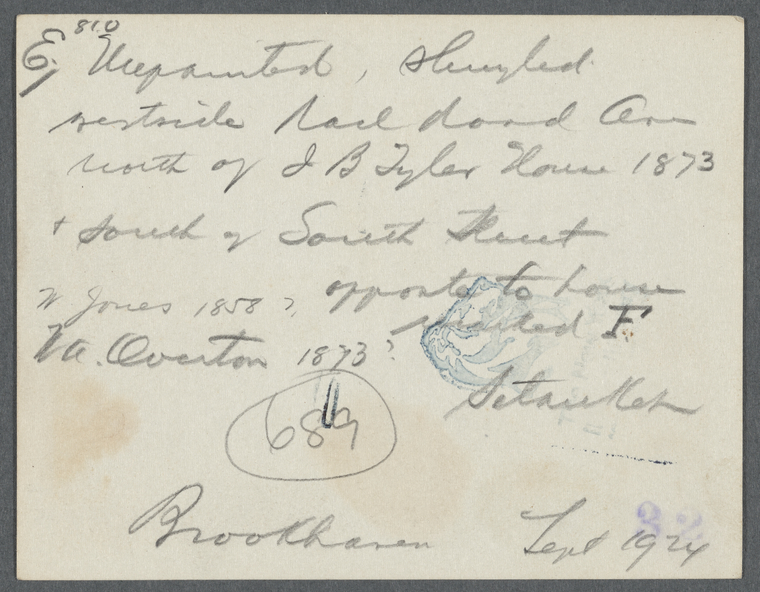 810
E, Unpainted, shingled
westside Rail Road Ave
north of J B Tyler House 1873
+ south of South Street
opposite to house
W Jones 1858 ?,
marked F
Wm. Overton 1873?
Setauket
689
Brookhaven Sept 1924